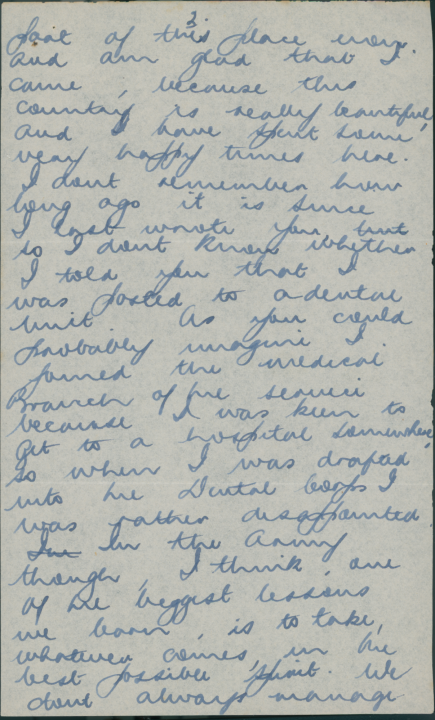 3.
part of this place now.
and am glad that I
came, because this
country is really beautiful,
and I have spent some
very happy times here.
I dont remember how
long ago it is since
I last wrote you but
so I dont know whether
I told you that I
was posted to a dental
unit. As you could
probably imagine I
joined the medical
Branch of the service
because I was keen to
get to a hospital somewhere,
so when I was drafted
into the Dental Corps I
was rather disappointed.
In the Army
though, I think, one
of the biggest lessons
we learn, is to take,
whatever comes, in the
best possible spirit. We
dont always manage